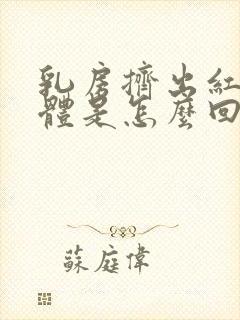 乳房擠出紅
體是怎麼回
蘇庭偉